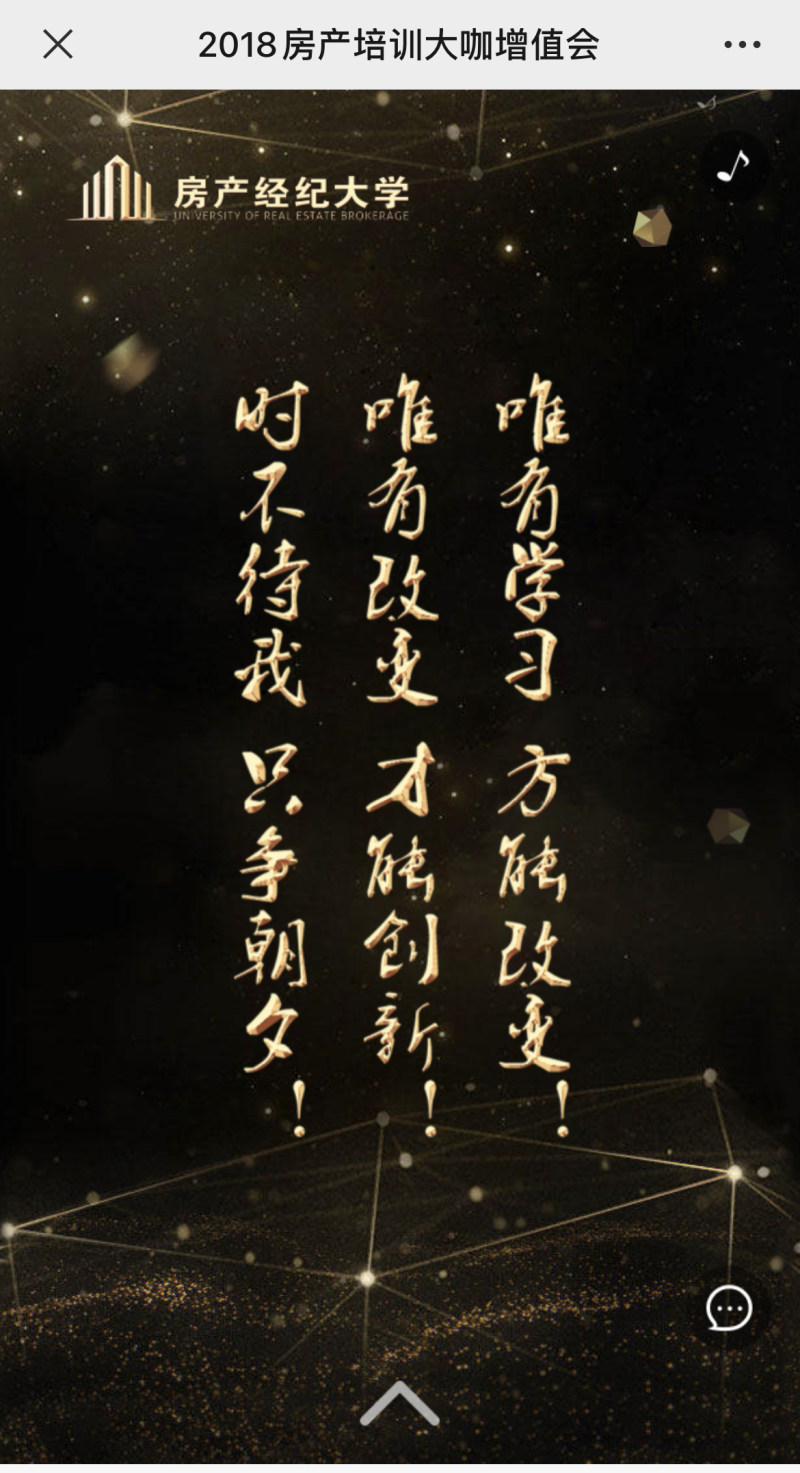 2018房产培训大咖增值会
房产经纪大学
UNIVERSITY OF REAL ESTATE BROKERAGE
唯有学习 方能改变！
唯有改变 才能创新！
时不待我 只争朝夕！